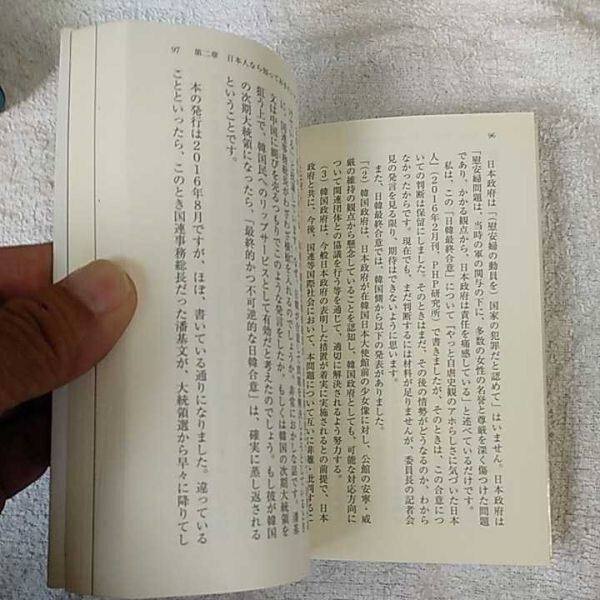 96
日本政府は「慰安婦の動員を」国家の犯罪だと認めて」はいません。日本政府は
「慰安婦問題は、当時の軍の関与の下に、多数の女性の名誉と尊厳を深く傷つけた問題
であり、かかる観点から、日本政府は責任を痛感している」と述べているだけです。
私は、この「日韓最終合意」について『やっと自虐史観のアホらしさに気づいた日本
人』(2016年2月刊、PHP研究所)で書きましたが、そのときは、この合意につ
いての判断は保留にしました。そのときはまだ、その後の情勢がどうなるのか、わから
なかったからです。現在でも、まだ判断するには材料が足りませんが、委員長の記者会
見の発言を見る限り、期待はできないように思います。
また、日韓最終合意では、韓国側から以下の発表がありました。
「(2)韓国政府は、日本政府が在韓国日本大使館前の少女像に対し、公館の安寧・威
厳の維持の観点から懸念していることを認知し、韓国政府としても、可能な対応方向に
ついて関連団体との協議を行う等を通じて、適切に解決されるよう努力する。
(3)韓国政府は、今般日本政府の表明した措置が着実に実施されるとの前提で、日本
政府と共に、今後、国連等国際社会において、本問題について互いに非難・批判するこ
97 第二章 日本人なら知っておきたい
に、国連事務総長がわざわざ横槍を入れるのでしょうか。非常におかしな話です。潘基
文は中国に媚びを売るつもりでこのような発言をしたか、もしくは韓国の次期大統領を
狙う上で、韓国民へのリップサービスとして有効だと考えたのでしょう。もし彼が韓国
の次期大統領になったら、「最終的かつ不可逆的な日韓合意」は、確実に蒸し返される
ということです。
本の発行は2016年8月ですが、ほぼ、書いている通りになりました。違っている
ことといったら、このとき国連事務総長だった潘基文が、大統領選から早々に降りてし